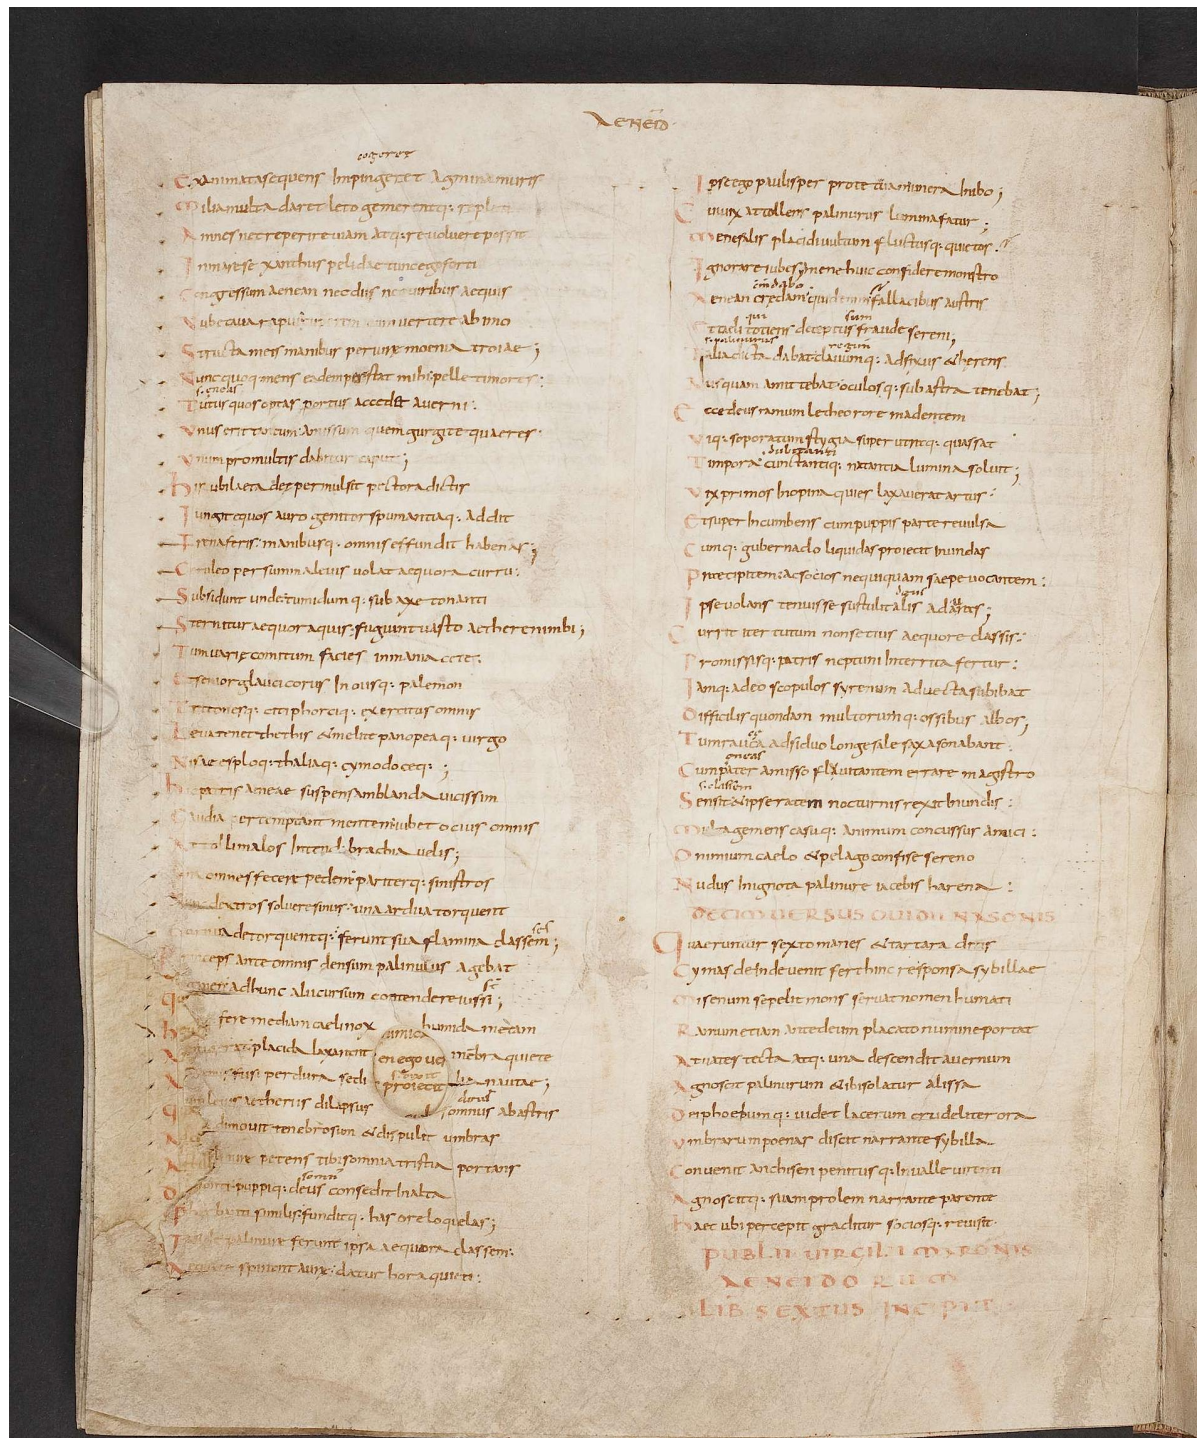 AENEID
cogeret
Exanimata sequens Impingeret Agmina muris
Milia multa daret leto gemerentq: repleti
Amnes nec reperire uiam atq: reuoluere posset
In mare se xanthus pelidae tunc ego forti
Congressum aenean nec diis nec uiribus aequis
Nube caua rapui cuperem cum uertere ab imo
Structa meis manibus periurae moenia troiae;
Nunc quoq: mens eadem perstat mihi: pelle timores:
s. eneas
Tutus quos optas portus accedet auerni:
Vnus erit tantum: amissum quem gurgite quaeres
Vnum pro multis dabitur caput;
His ubi laeta deae permulsit pectora dictis
Iungit equos auro genitor spumantiaq: addit
Frena feris: manibusq: omnis effundit habenas;
Caeruleo per summa leuis uolat aequora curru:
Subsidunt undae: tumidumq: sub axe tonanti
Sternitur aequor aquis: fugiunt uasto aethere nimbi;
Tum uariae comitum facies inmania cete:
Et senior glauci corus Inousq: palemon
Tritonesq: citi phorciq: exercitus omnis
Leua tenet thethis & melite panopeaq: uirgo
Nisae espioq: thaliaq: cymodoceq: ;
hic patris aeneae suspensam blanda uicissim
Gaudia pertemptant mentem: iubet ocius omnis
Attolli malos Intendi brachia uelis;
Una omnes fecere pedem: pariterq: sinistros
Nunc dextros soluere sinus: una ardua torquent
Cornua detorquentq: ferunt sua flamina classem;
Princeps ante omnis densum palinurus Agebat
Agmen ad hunc alii cursum contendere iussi;
fere mediam caeli nox humida metam
placida laxant membra quiete
fusi per dura sedi nautae;
leuis aetheriis dilapsus somnus ab astris
dimouit tenebrosum & dispulit umbras
petens tibi somnia tristia portans
somn
puppiq: deus consedit In alta
Phorbanti similis: funditq: has ore loquelas;
Iaside palinure ferunt ipsa aequora classem:
Aequatae spirant aurae: datur hora quieti:
Ipse ego paulisper pro te tua munera Inibo;
Cui uix attollens palinurus lumina fatur;
Mene salis placidi uultum fluctusq: quietos
Ignorare iubes mene huic confidere monstro
Aenean credam quid enim fallacibus austris
Et caeli totiens deceptus fraude sereni;
s. palinurus
Talia dicta dabat: clauumq: adfixus & herens
Nusquam amittebat: oculosq: sub astra tenebat;
Ecce deus ramum letheo rore madentem
Viq: soporatum stygia super utraq: quassat
Timpora: cunctantiq: natantia lumina soluit;
Vix primos Inopina quies laxauerat artus:
Et super Incumbens cum puppis parte reuulsa
Cumq: gubernaclo liquidas proiecit In undas
Precipitem: ac socios nequiquam saepe uocantem:
Ipse uolans tenuis se sustulit alis ad auras;
Currit iter tutum non setius aequore classis:
Promissisq: patris neptuni Interrita fertur:
Iamq: adeo scopulos syrenum aduecta subibat
Difficilis quondam multorumq: ossibus albos;
Tum rauca adsiduo longe sale saxa sonabant:
eneas
Cum pater amisso fluitantem errare magistro
s. classem
Sensit & ipse ratem nocturnis rexit In undis:
Multa gemens casuq: animum concussus amici:
O nimium caelo & pelago confise sereno
Nudus In ignota palinure iacebis harena:
DECIM UERSUS OUIDII NASONIS
Quaeruntur sexto manes & tartara ditis
Cymas deinde uenit fert hinc responsa sybillae
Misenum sepelit mons seruat nomen humati
Ramum etiam ante deum placato numine portat
At uates tecta atq: una descendit auernum
Agnoscit palinurum & ibi solatur alissa
Deiphoebumq: uidet lacerum crudeliter ora
Vmbrarum poenas discit narrante sybilla
Conuenit anchisen penitusq: In ualle uirenti
Agnoscitq: suam prolem narrante parente
haec ubi percepit graditur sociosq: reuisit
PUBLII UIRGILII MARONIS
AENEIDORUM
LIB SEXTUS INCIPIT